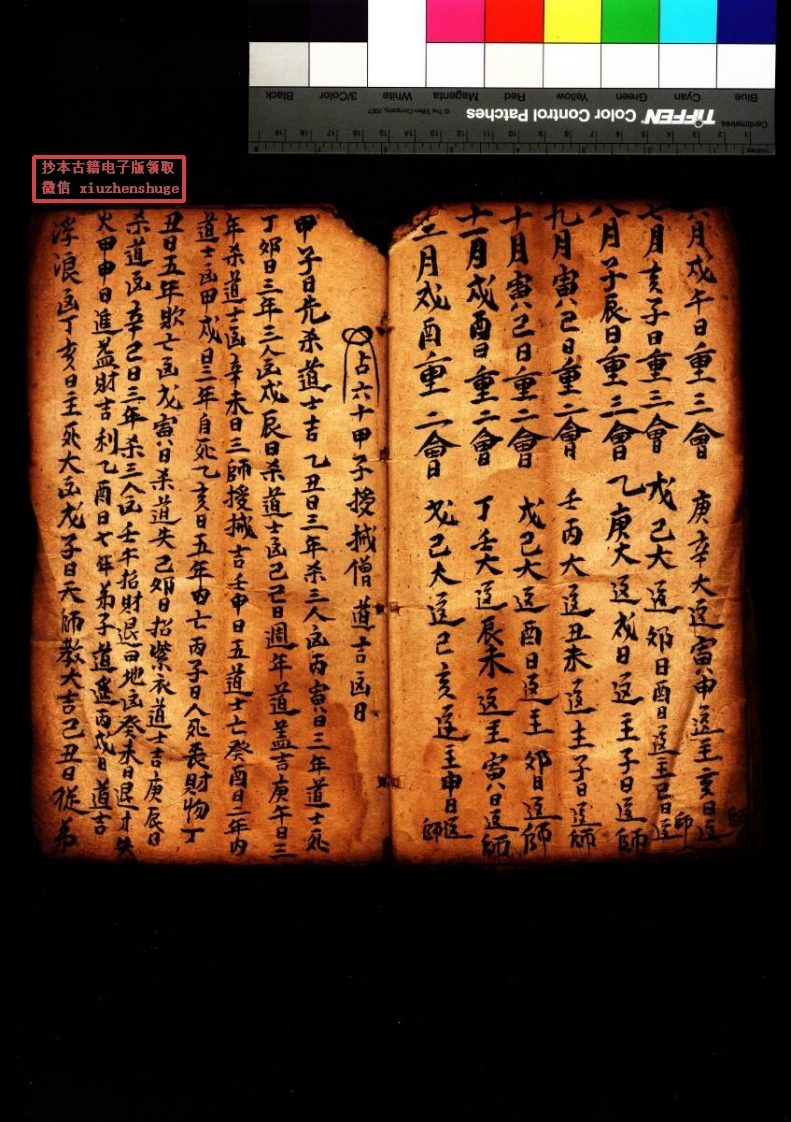 抄本古籍电子版领取
微信 xiuzhenshuge
TIFFEN Color Control Patches
© The Tiffen Company, 2007
Blue Cyan Green Yellow Red Magenta White 3/Color Black
Centimetres
Inches
月戌午日重三會 庚辛大逗寅申逗主亥日逗師
七月亥子日重三會 戊己大逗卯日酉日逗主巳日逗師
八月子辰日重三會 乙庚大逗戌日逗主子日逗師
九月寅巳日重二會 壬丙大逗丑未逗主子日逗師
十月寅巳日重二會 戊己大逗酉日逗主卯日逗師
十一月戌酉日重二會 丁壬大逗辰未逗主寅日逗師
二月戌酉重二會日 戊己大逗己亥逗主申日逗師
占六十甲子授械僧道吉凶日
甲子日先杀道士吉乙丑日三年杀三人凶丙寅日三年道士死
丁卯日三年三人凶戊辰日杀道士凶己巳日週年道益吉庚午日三
年杀道士凶辛未日三師授械吉壬申日五道士亡癸酉日二年内
道士凶甲戌日三年自死乙亥日五年内亡丙子日人死丧財物丁
丑日五年敗亡凶戊寅日杀道失己卯日招紫衣道士吉庚辰日
杀道凶辛巳日三年杀三人凶壬午招財退田地凶癸未日退才失
火甲申日進益財吉利乙酉日七年弟子道進丙戌日道吉
浮浪凶丁亥日主死大凶戊子日天師教大吉己丑日従弟